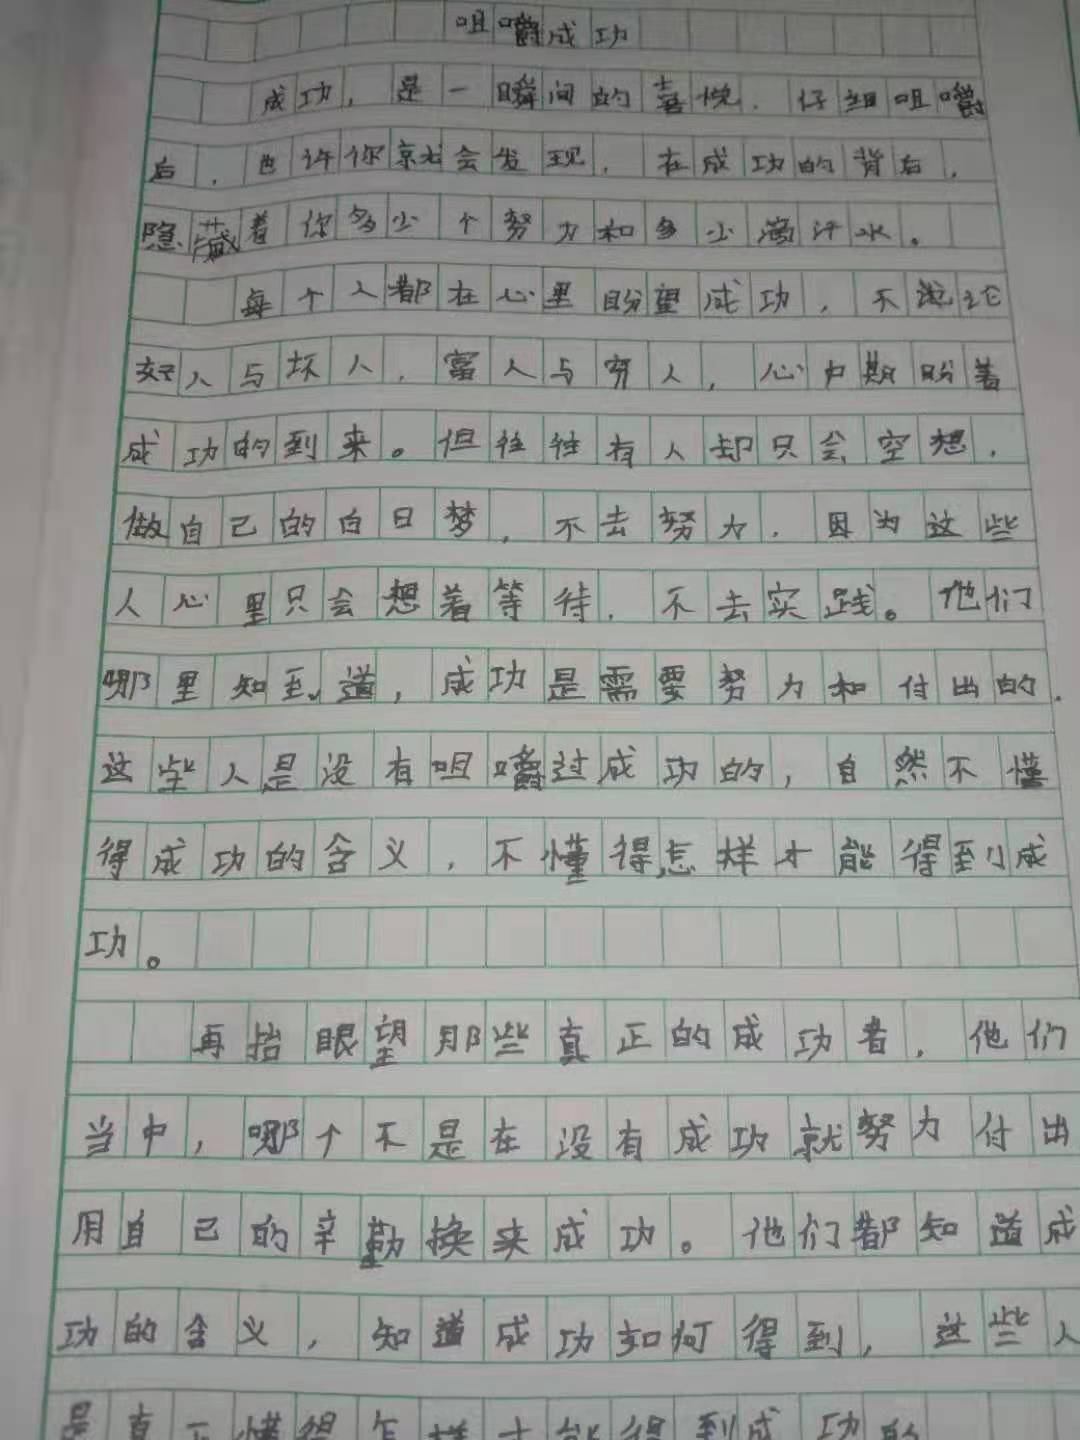 咀嚼成功
成功，是一瞬间的喜悦．仔细咀嚼
后，也许你就会发现．在成功的背后，
隐藏着你多少个努力和多少滴汗水。
每个人都在心里盼望成功，不论
好人与坏人．富人与穷人，心中期盼着
成功的到来。但往往有人却只会空想．
做自己的白日梦，不去努力．因为这些
人心里只会想着等待．不去实践。他们
哪里知道，成功是需要努力和付出的．
这些人是没有咀嚼过成功的，自然不懂
得成功的含义．不懂得怎样才能得到成
功。
再抬眼望那些真正的成功者．他们
当中，哪个不是在没有成功就努力付出
用自己的辛勤换来成功。他们都知道成
功的含义，知道成功如何得到，这些人
是真正懂得怎样才能得到成功的